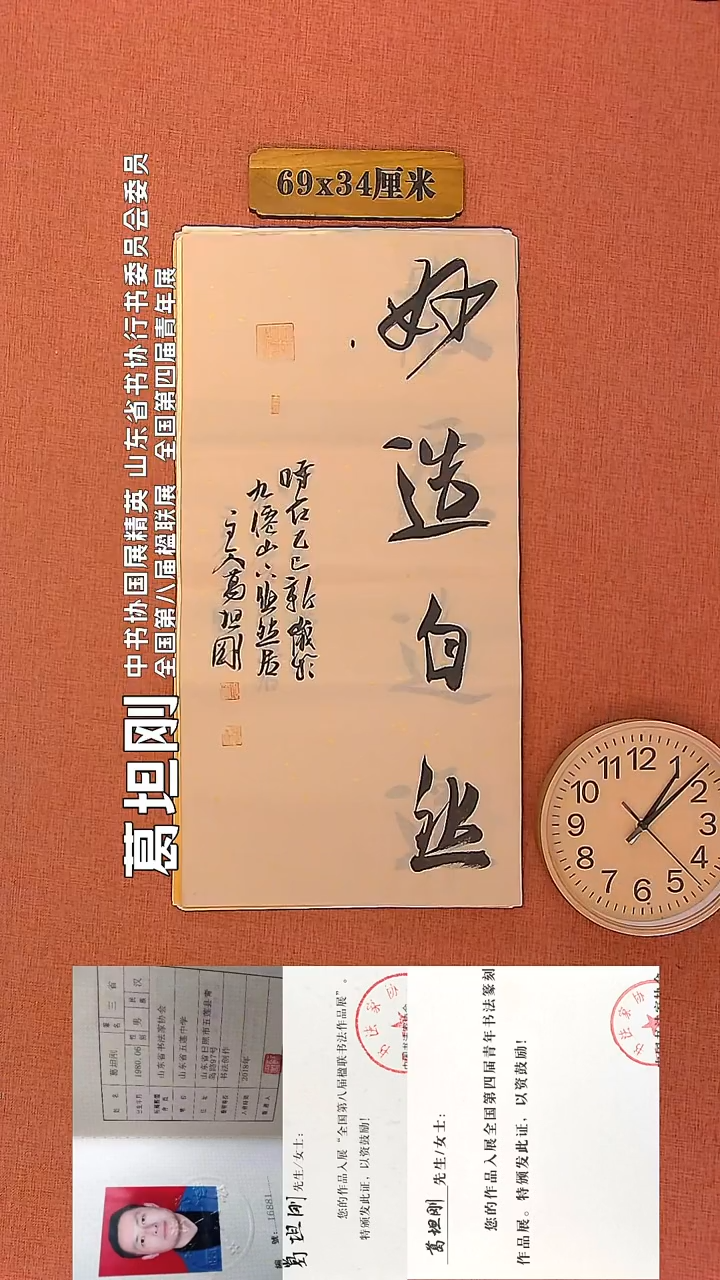 69x34厘米
葛坦刚
中书协国展精英 山东省书协行书委员会委员
全国第八届楹联展 全国第四届青年展
妙造自然
時在乙巳新嵗於
九僊山下悠然居
主人葛坦刚
11 12 1
10 2
9 3
8 4
7 6 5
葛坦刚
男
汉
1980.06
山东省书法家协会
山东省五莲中学
山东省日照市五莲县
书法创作
2018年
號：16881
葛坦刚 先生/女士：
您的作品入展“全国第八届楹联书法作品展”。
特颁发此证，以资鼓励！
葛坦刚 先生/女士：
您的作品入展全国第四届青年书法篆刻
作品展。特颁发此证，以资鼓励！